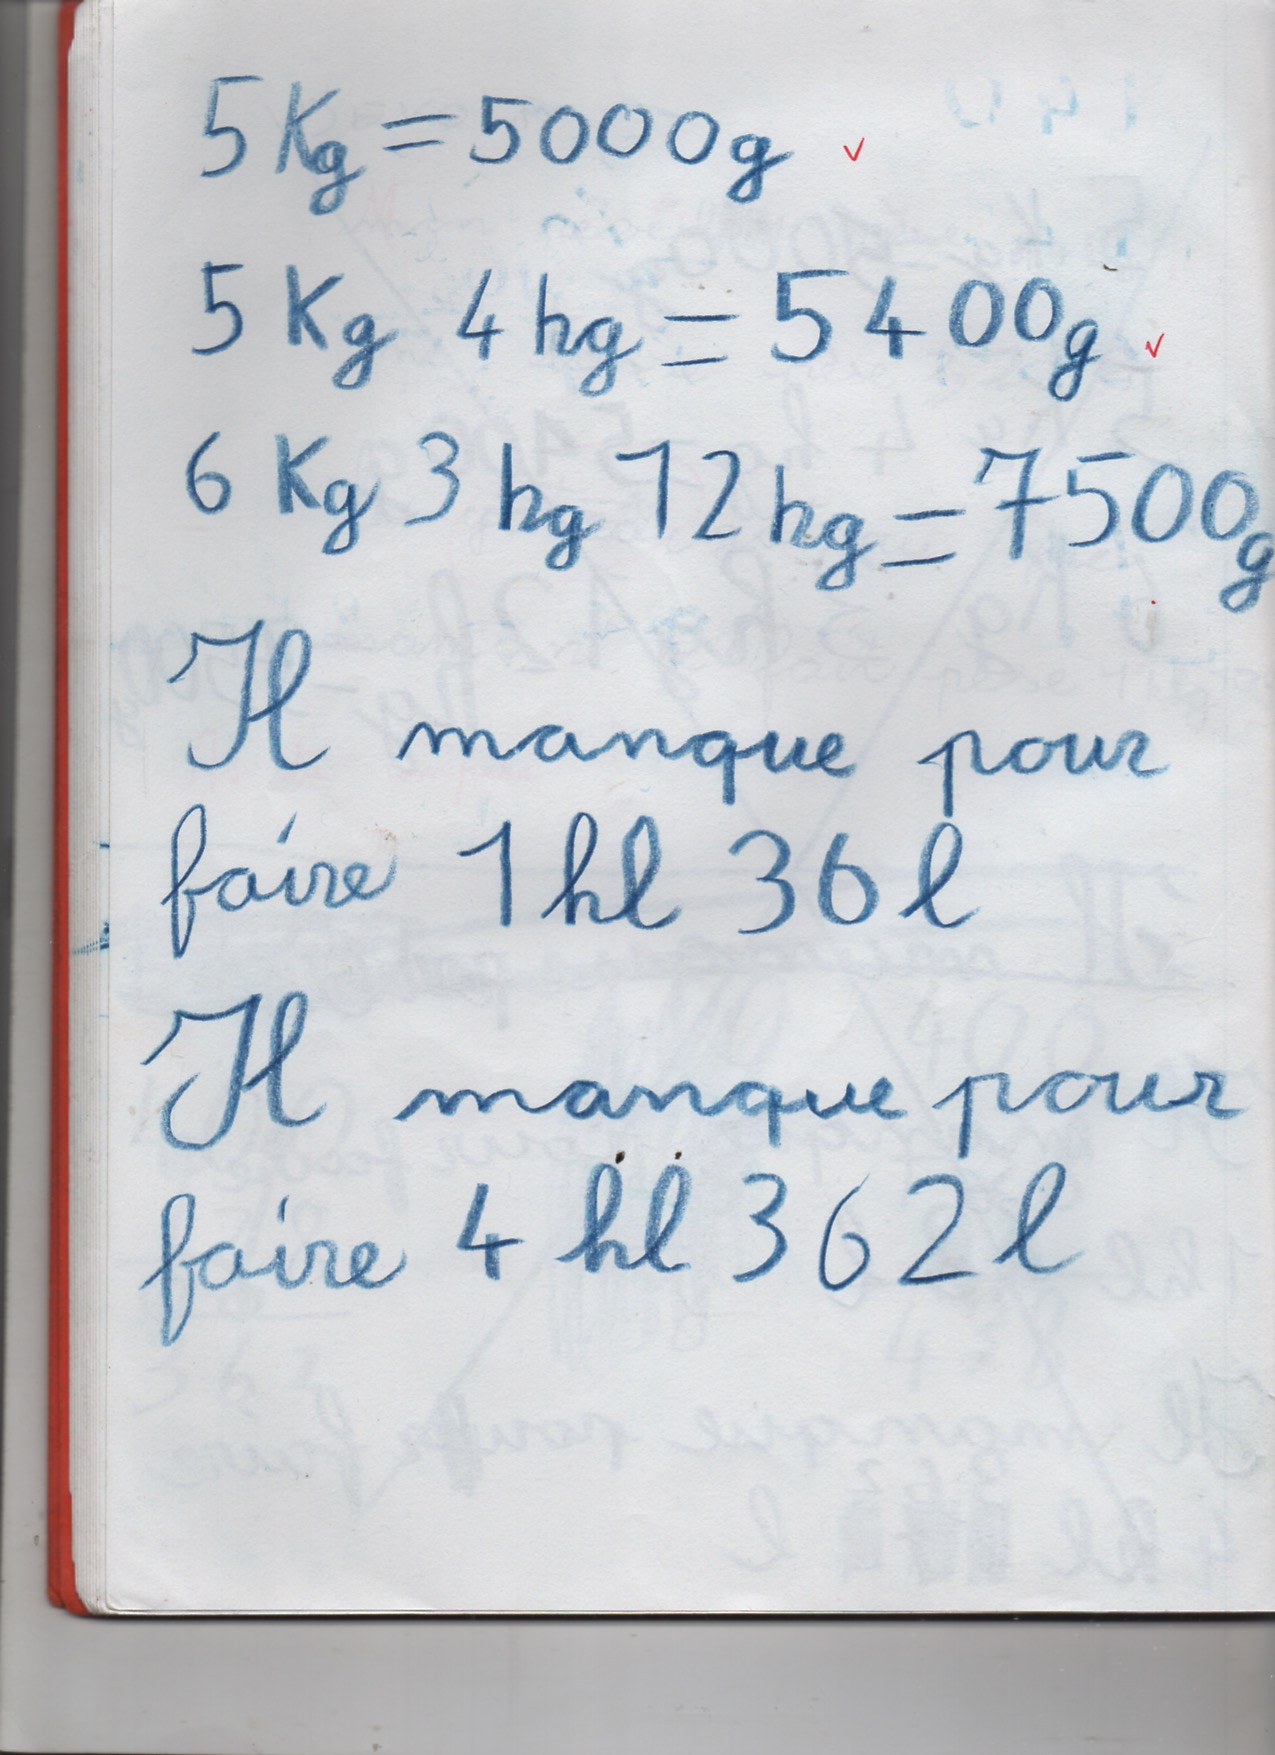 5 Kg = 5000g
5 Kg 4 hg = 5400g
6 Kg 3 hg 12 hg = 7500g
Il manque pour
faire 1 hl 36 l
Il manque pour
faire 4 hl 362 l